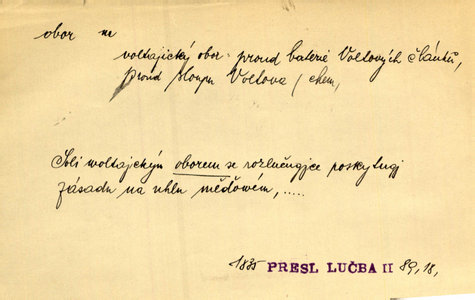 obor m
voltajický obor: proud baterie Voltových článků,
proud sloupu Voltova / chem,
Soli woltajckým oborem se rozlučugjce poskytugj
zásadu na uhlu měďowém, .....
1835 PRESL LUČBA II 89, 18,